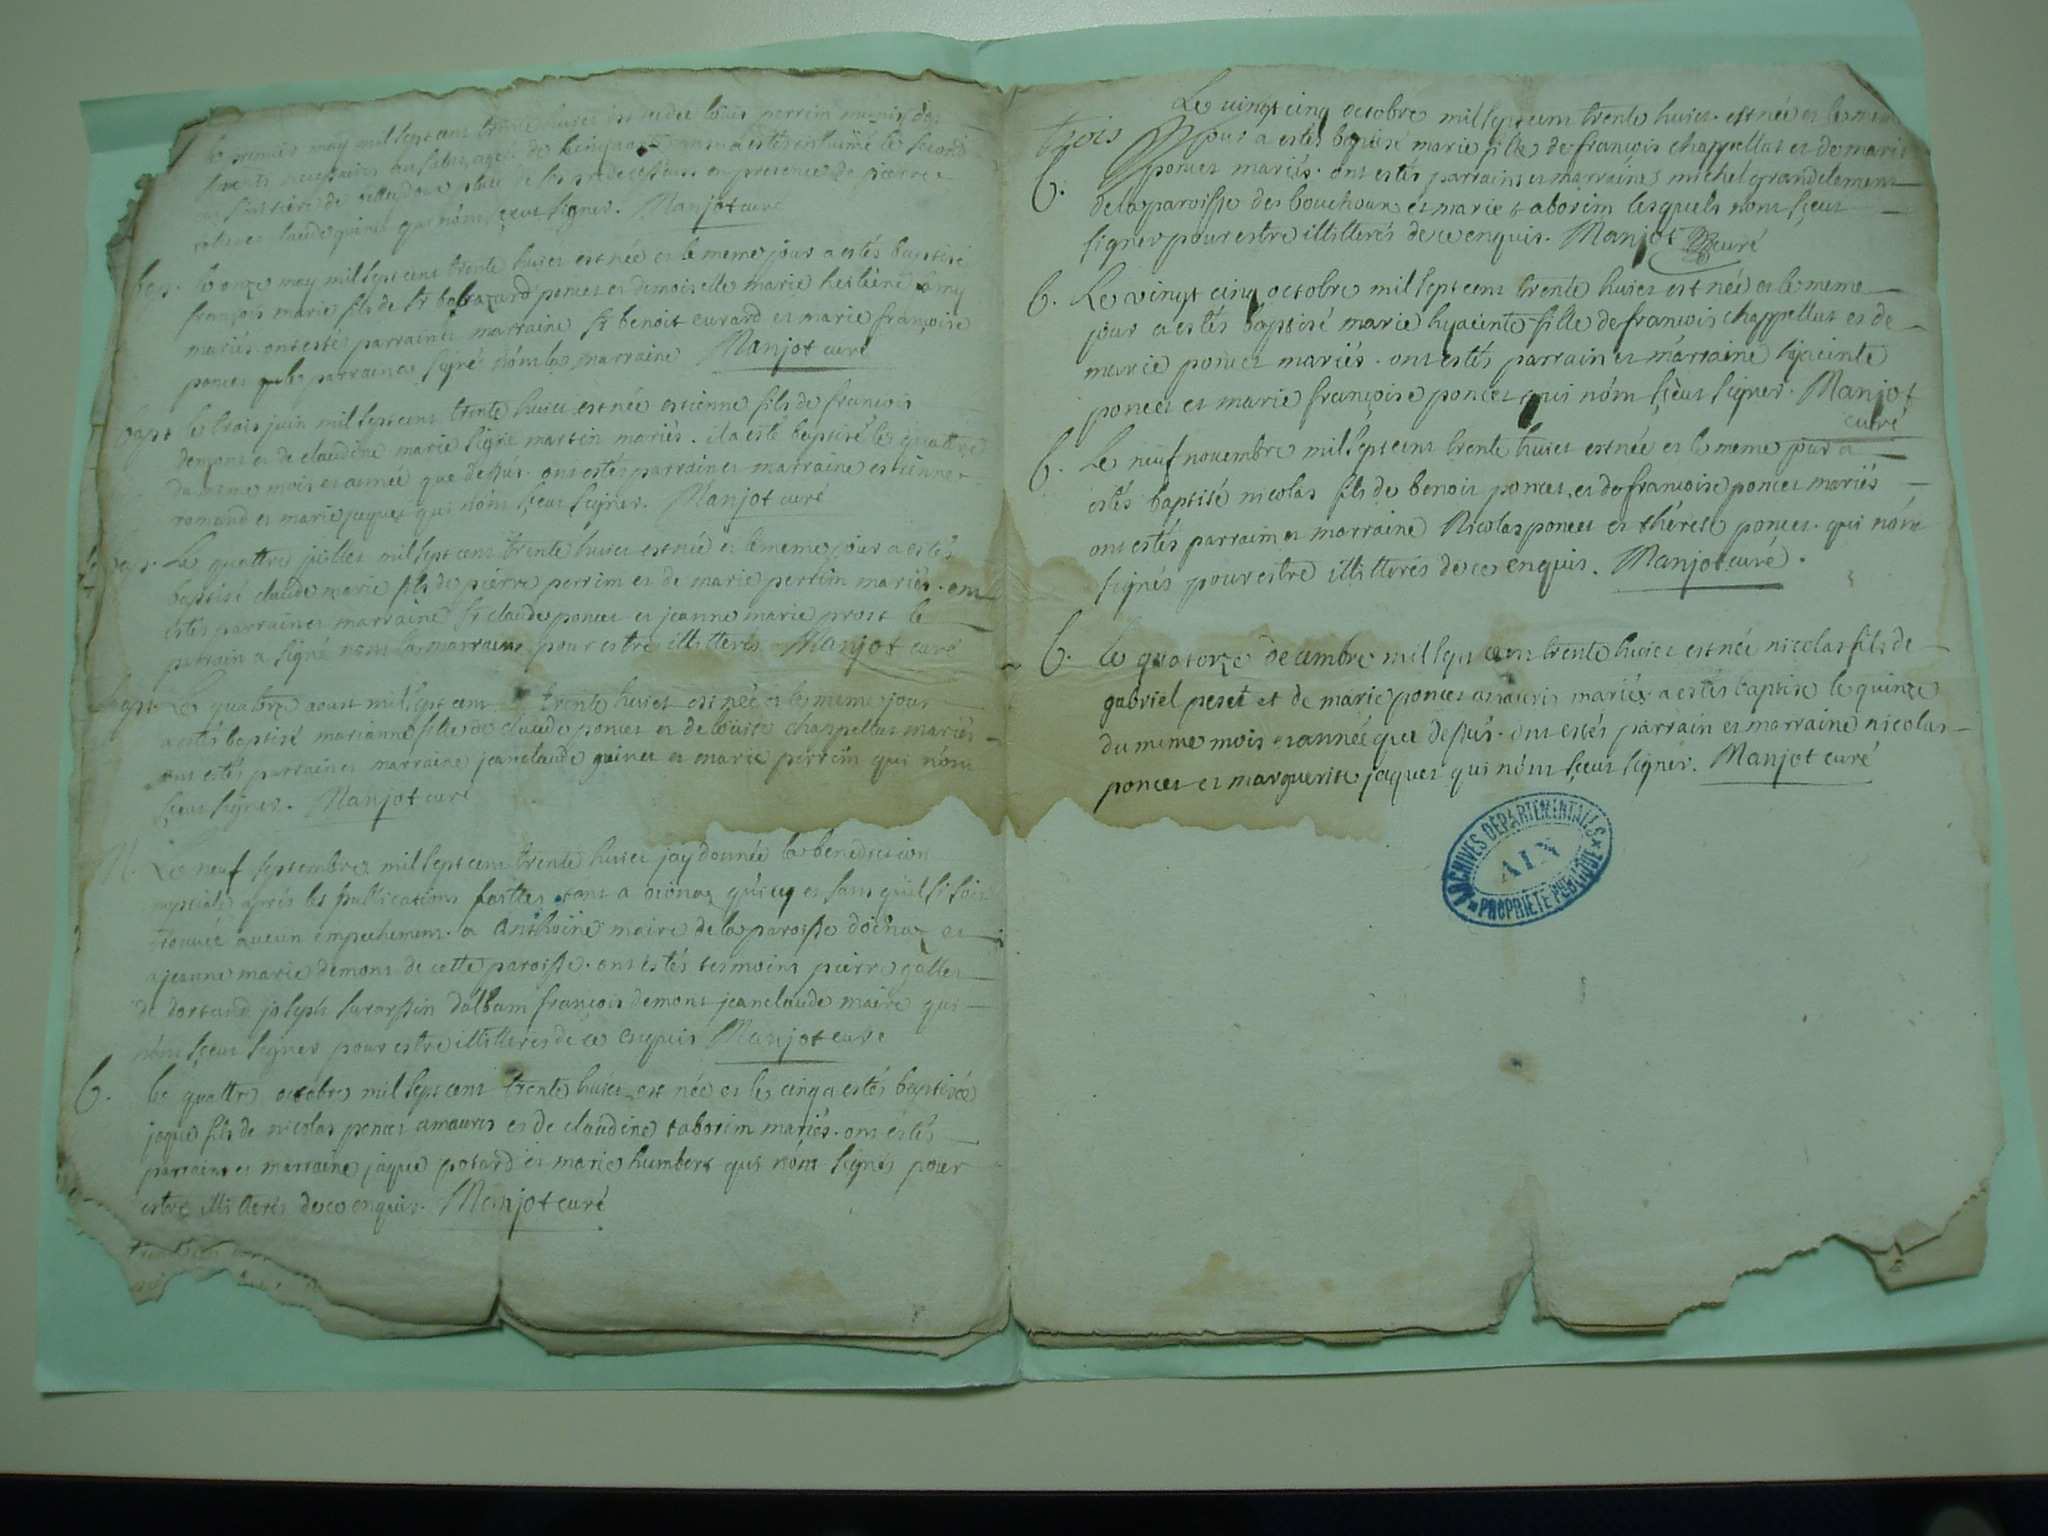 le premier may mil sept cens trente huict est decedee louis perrin munis des
sacrements necessaires au salut, agée de cinquante ans a estés inhumé le second
au simtiere de place de ses predecesseurs en presence de pierre
et claude guinet qui nóm sçeut signer. Manjot curé
bap. le onze may mil sept cens trente huict est née et le meme jour a estés baptisé
françois marie fils de Sr baltazard poncet et demoiselle marie heslêne lamy
mariés. ont estés parrain et marraine Sr benoit evrard et marie françoise
poncet le parrain a signé nóm la marraine Manjot curé
bapt le trois juin mil sept cens trente huict est née estienne fils de francois
demons et de claudine marie ligne martin mariés. il a esté baptisé le quattre
du meme mois et année que dessus. ont estés parrain et marraine estienne
romand et marie jaquet qui nóm sçeut signer. Manjot curé
bap. Le quattre juillet mil sept cens trente huict est née et le meme jour a estés
baptisé claude marie fils de pierre perrim et de marie perrim mariés. ont
estés parrain et marraine Sr claude poncet et jeanne marie prost le
parrain a signé nóm la marraine pour estre illitterés Manjot curé
bapt. Le quatorze aoust mil sept cens trente huict est née et le meme jour
a estés baptisé marianne fille de claude poncet et de louise chappellut mariés
ont estés parrain et marraine jeanclaude guinet et marie perrim qui nóm
sçeut signer. Manjot curé
M. Le neuf septembre mil sept cens trente huict jay donnée la benediction
nuptiale aprés les publications faittes tant a oiönaz quicy et sans quil si soit
trouvée aucun empechement. a Anthoine maire de la paroisse doiönaz et
a jeanne marie demons de cette paroisse. ont estés tesmoins pierre gallet
de dortand joseph sararssin dalbam françois demons jeanclaude maire qui
nóm sçeut signer pour estre illitterés de ce enquis Manjot curé
b. le quattre octobre mil sept cens trente huict est née et le cinq a estés baptisée
jaque fils de nicolas poncet amauris et de claudine taborim mariés. ont estés
parrain et marraine jaque potard et marie humbert qui nóm signés pour
estre illitterés de ce enquis. Manjot curé
trois
Le vingt cinq octobre mil sept cens trente huict. est née et le meme
b. jour a estés baptisé marie fille de francois chappellut et de marie
poncet mariés. ont estés parrain et marraine michel grandclement
de la paroisse des bouchoux et marie taborim lesquels nont sçeut
signer pour estre illitterés de ce enquis. Manjot curé
b. Le vingt cinq octobre mil sept cens trente huict est née et le meme
jour a estés baptisé marie hyacinte fille de francois chappellut et de
marie poncet mariés. ont estés parrain et marraine hjacinte
poncet et marie françoise poncet qui nóm sçeut signer. Manjot
curé
b. Le neuf novembre mil sept cens trente huict est née et le meme jour a
estés baptisé nicolas fils de benoit poncet et de francoise poncet mariés
ont estés parrain et marraine Nicolas poncet et thérese poncet. qui nóm
signés pour estre illitterés de ce enquis. Manjot curé.
b. le quatorze decembre mil sept cens trente huict est née nicolas fils de
gabriel peset et de marie poncet amauris mariés a estés baptisé le quinze
du meme mois et année que dessus. ont estés parrain et marraine nicolas
poncet et marguerite jaquet qui nóm sçeut signer. Manjot curé
ARCHIVES DEPARTEMENTALES
AIN
PROPRIETE PUBLIQUE